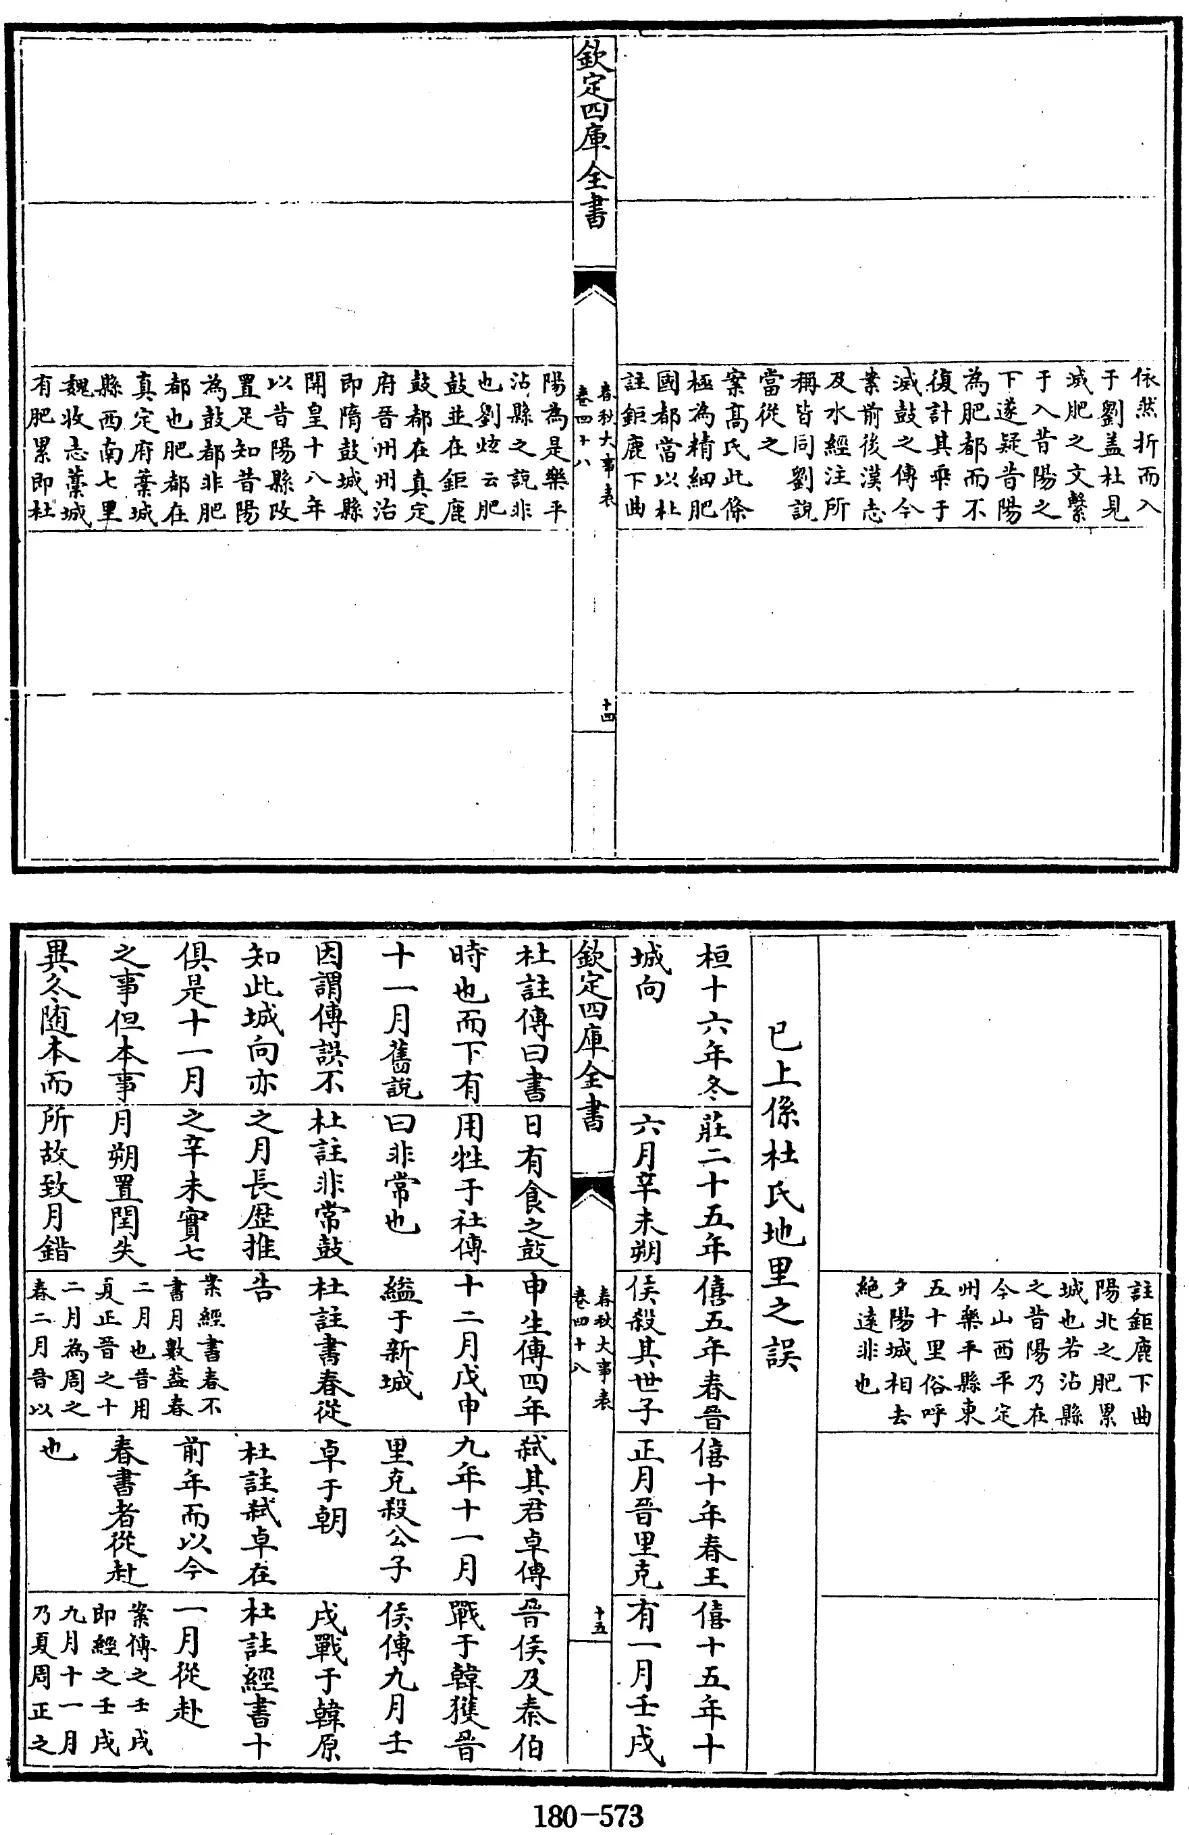 依然折而入
于劉蓋杜見
滅肥之文繫
于入昔陽之
下遂疑昔陽
為肥都而不
復計其乖于
滅鼓之傳今
案前後漢志
及水經注所
稱皆同劉說
當從之
案髙氏此條
極為精細肥
國都當以杜
註鉅鹿下曲
欽定四庫全書
春秋大事表
卷四十八
十四
陽為是樂平
沾縣之說非
也劉炫云肥
鼓並在鉅鹿
鼓都在真定
府晉州州治
即隋鼓城縣
開皇十八年
以昔陽縣改
置足知昔陽
為鼓都非肥
都也肥都在
真定府藁城
縣西南七里
魏收志藁城
有肥累即杜
註鉅鹿下曲
陽北之肥累
城也若沾縣
之昔陽乃在
今山西平定
州樂平縣東
五十里俗呼
夕陽城相去
絕遠非也
已上係杜氏地里之誤
桓十六年冬
城向
莊二十五年
六月辛未朔
僖五年春晉
侯殺其世子
僖十年春王
正月晉里克
僖十五年十
有一月壬戌
欽定四庫全書
春秋大事表
卷四十八
十五
杜註傳曰書
時也而下有
十一月舊說
因謂傳誤不
知此城向亦
俱是十一月
之事但本事
異冬隨本而
日有食之鼓
用牲于社傳
曰非常也
杜註非常鼓
之月長歴推
之辛未實七
月朔置閏失
所故致月錯
申生傳四年
十二月戊申
縊于新城
杜註書春從
告
案經書春不
書月數蓋春
二月也晉用
夏正晉之十
二月為周之
春二月晉以
弑其君卓傳
九年十一月
里克殺公子
卓于朝
杜註弑卓在
前年而以今
春書者從赴
也
晉侯及秦伯
戰于韓獲晉
侯傳九月壬
戌戰于韓原
杜註經書十
一月從赴
案傳之壬戌
即經之壬戌
九月十一月
乃夏周正之
180-573